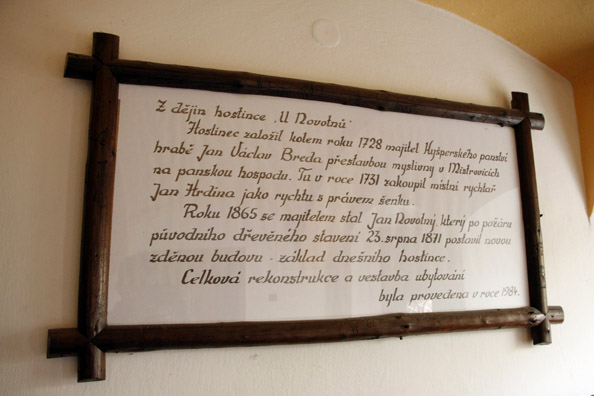 Z dějin hostince „U Novotnů‘
Hostinec založil kolem roku 1728 majitel Kyšperského panství
hrabě Jan Václav Breda přestavbou myslivny v Mistrovicích
na panskou hospodu. Tu v roce 1731 zakoupil místní rychtář
Jan Hrdina jako rychtu s právem šenku.
Roku 1865 se majitelem stal Jan Novotný, který po požáru
původního dřevěného stavení 23. srpna 1871 postavil novou
zděnou budovu - základ dnešního hostince.
Celková rekonstrukce a vestavba ubytování
byla provedena v roce 1984.